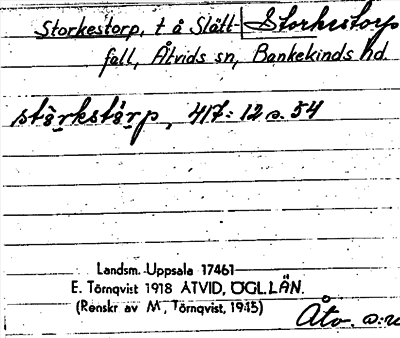 Storkestorp, t å Slätt- Storkestorp
fall, Åtvids sn, Bankekinds hd.
stårkstårp, 417: 12 o. 54
Landsm. Uppsala 17461
E. Törnqvist 1918 ÅTVID, ÖGL.LÄN.
(Renskr av M. Törnqvist, 1945)
Åtv. s:n